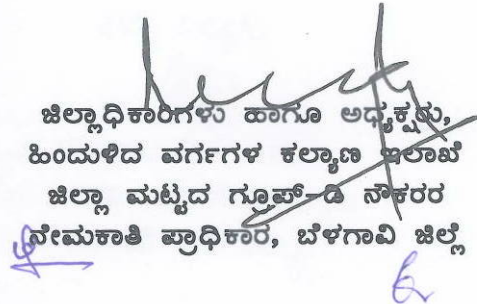 ಜಿಲ್ಲಾಧಿಕಾರಿಗಳು ಹಾಗೂ ಅಧ್ಯಕ್ಷರು,
ಹಿಂದುಳಿದ ವರ್ಗಗಳ ಕಲ್ಯಾಣ ಇಲಾಖೆ
ಜಿಲ್ಲಾ ಮಟ್ಟದ ಗ್ರೂಪ್-ಡಿ ನೌಕರರ
ನೇಮಕಾತಿ ಪ್ರಾಧಿಕಾರ, ಬೆಳಗಾವಿ ಜಿಲ್ಲೆ